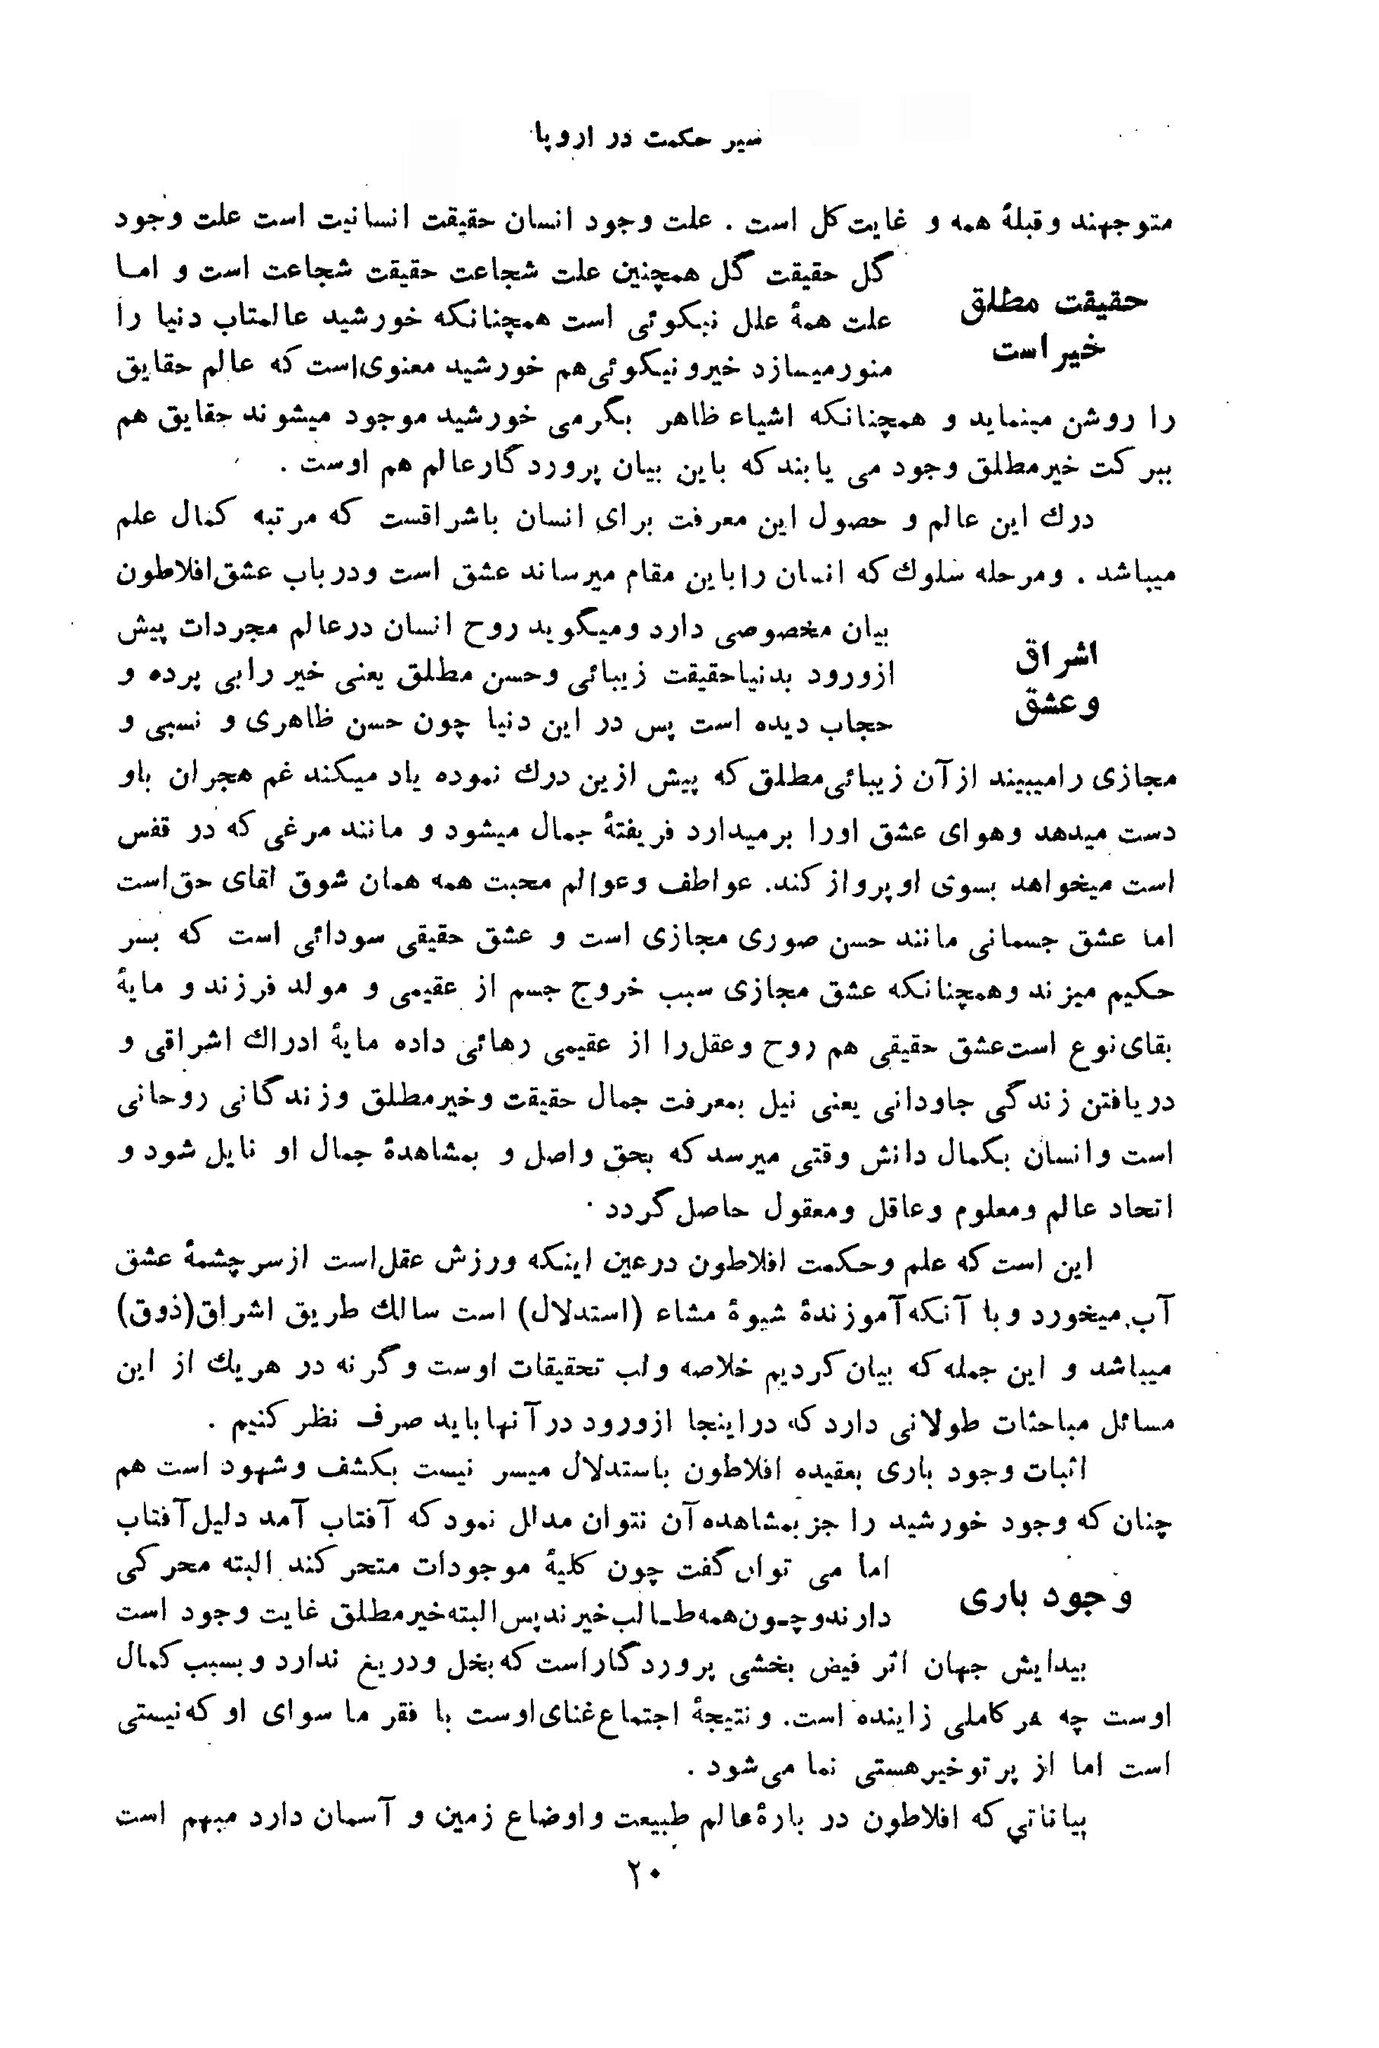 سیر حکمت در اروپا
متوجهند و قبلهٔ همه و غایت کل است . علت وجود انسان حقیقت انسانیت است علت وجود
گل حقیقت گل همچنین علت شجاعت حقیقت شجاعت است و اما
حقیقت مطلق
خیر است
علت همهٔ علل نیکوئی است همچنانکه خورشید عالمتاب دنیا را
منور میسازد خیر و نیکوئی هم خورشید معنوی است که عالم حقایق
را روشن مینماید و همچنانکه اشیاء ظاهر بگرمی خورشید موجود میشوند حقایق هم
ببرکت خیر مطلق وجود می یابند که باین بیان پروردگار عالم هم اوست .
درك این عالم و حصول این معرفت برای انسان باشراقست که مرتبه کمال علم
میباشد . ومرحله سلوك که انسان را باین مقام میرساند عشق است ودر باب عشق افلاطون
بیان مخصوصی دارد ومیگوید روح انسان در عالم مجردات پیش
اشراق
وعشق
از ورود بدنیا حقیقت زیبائی وحسن مطلق یعنی خیر را بی پرده و
حجاب دیده است پس در این دنیا چون حسن ظاهری و نسبی و
مجازی را میبیند از آن زیبائی مطلق که پیش ازین درك نموده یاد میکند غم هجران باو
دست میدهد وهوای عشق اورا برمیدارد فریفتهٔ جمال میشود و مانند مرغی که در قفس
است میخواهد بسوی او پرواز کند. عواطف وعوالم محبت همه همان شوق لقای حق است
اما عشق جسمانی مانند حسن صوری مجازی است و عشق حقیقی سودائی است که بسر
حکیم میزند وهمچنانکه عشق مجازی سبب خروج جسم از عقیمی و مولد فرزند و مایهٔ
بقای نوع است عشق حقیقی هم روح وعقل را از عقیمی رهائی داده مایهٔ ادراك اشراقی و
دریافتن زندگی جاودانی یعنی نیل بمعرفت جمال حقیقت وخیر مطلق وزندگانی روحانی
است وانسان بکمال دانش وقتی میرسد که بحق واصل و بمشاهدهٔ جمال او نایل شود و
اتحاد عالم ومعلوم وعاقل ومعقول حاصل گردد .
این است که علم وحکمت افلاطون در عین اینکه ورزش عقل است از سرچشمهٔ عشق
آب میخورد و با آنکه آموزندهٔ شیوهٔ مشاء (استدلال) است سالك طریق اشراق(ذوق)
میباشد و این جمله که بیان کردیم خلاصه ولب تحقیقات اوست و گر نه در هریك از این
مسائل مباحثات طولانی دارد که در اینجا از ورود در آنها باید صرف نظر کنیم .
اثبات وجود باری بعقیده افلاطون باستدلال میسر نیست بکشف وشهود است هم
چنان که وجود خورشید را جز بمشاهده آن نتوان مدلل نمود که آفتاب آمد دلیل آفتاب
اما می توان گفت چون کلیهٔ موجودات متحرکند البته محرکی
وجود باری
دارند وچـون همه طـالب خیرند پس البته خیر مطلق غایت وجود است
پیدایش جهان اثر فیض بخشی پروردگار است که بخل ودریغ ندارد وبسبب کمال
اوست چه هر کاملی زاینده است. ونتیجهٔ اجتماع غنای اوست با فقر ما سوای او که نیستی
است اما از پرتو خیر هستی نما می شود .
بیاناتی که افلاطون در بارهٔ عالم طبیعت واوضاع زمین و آسمان دارد مبهم است
۲۰